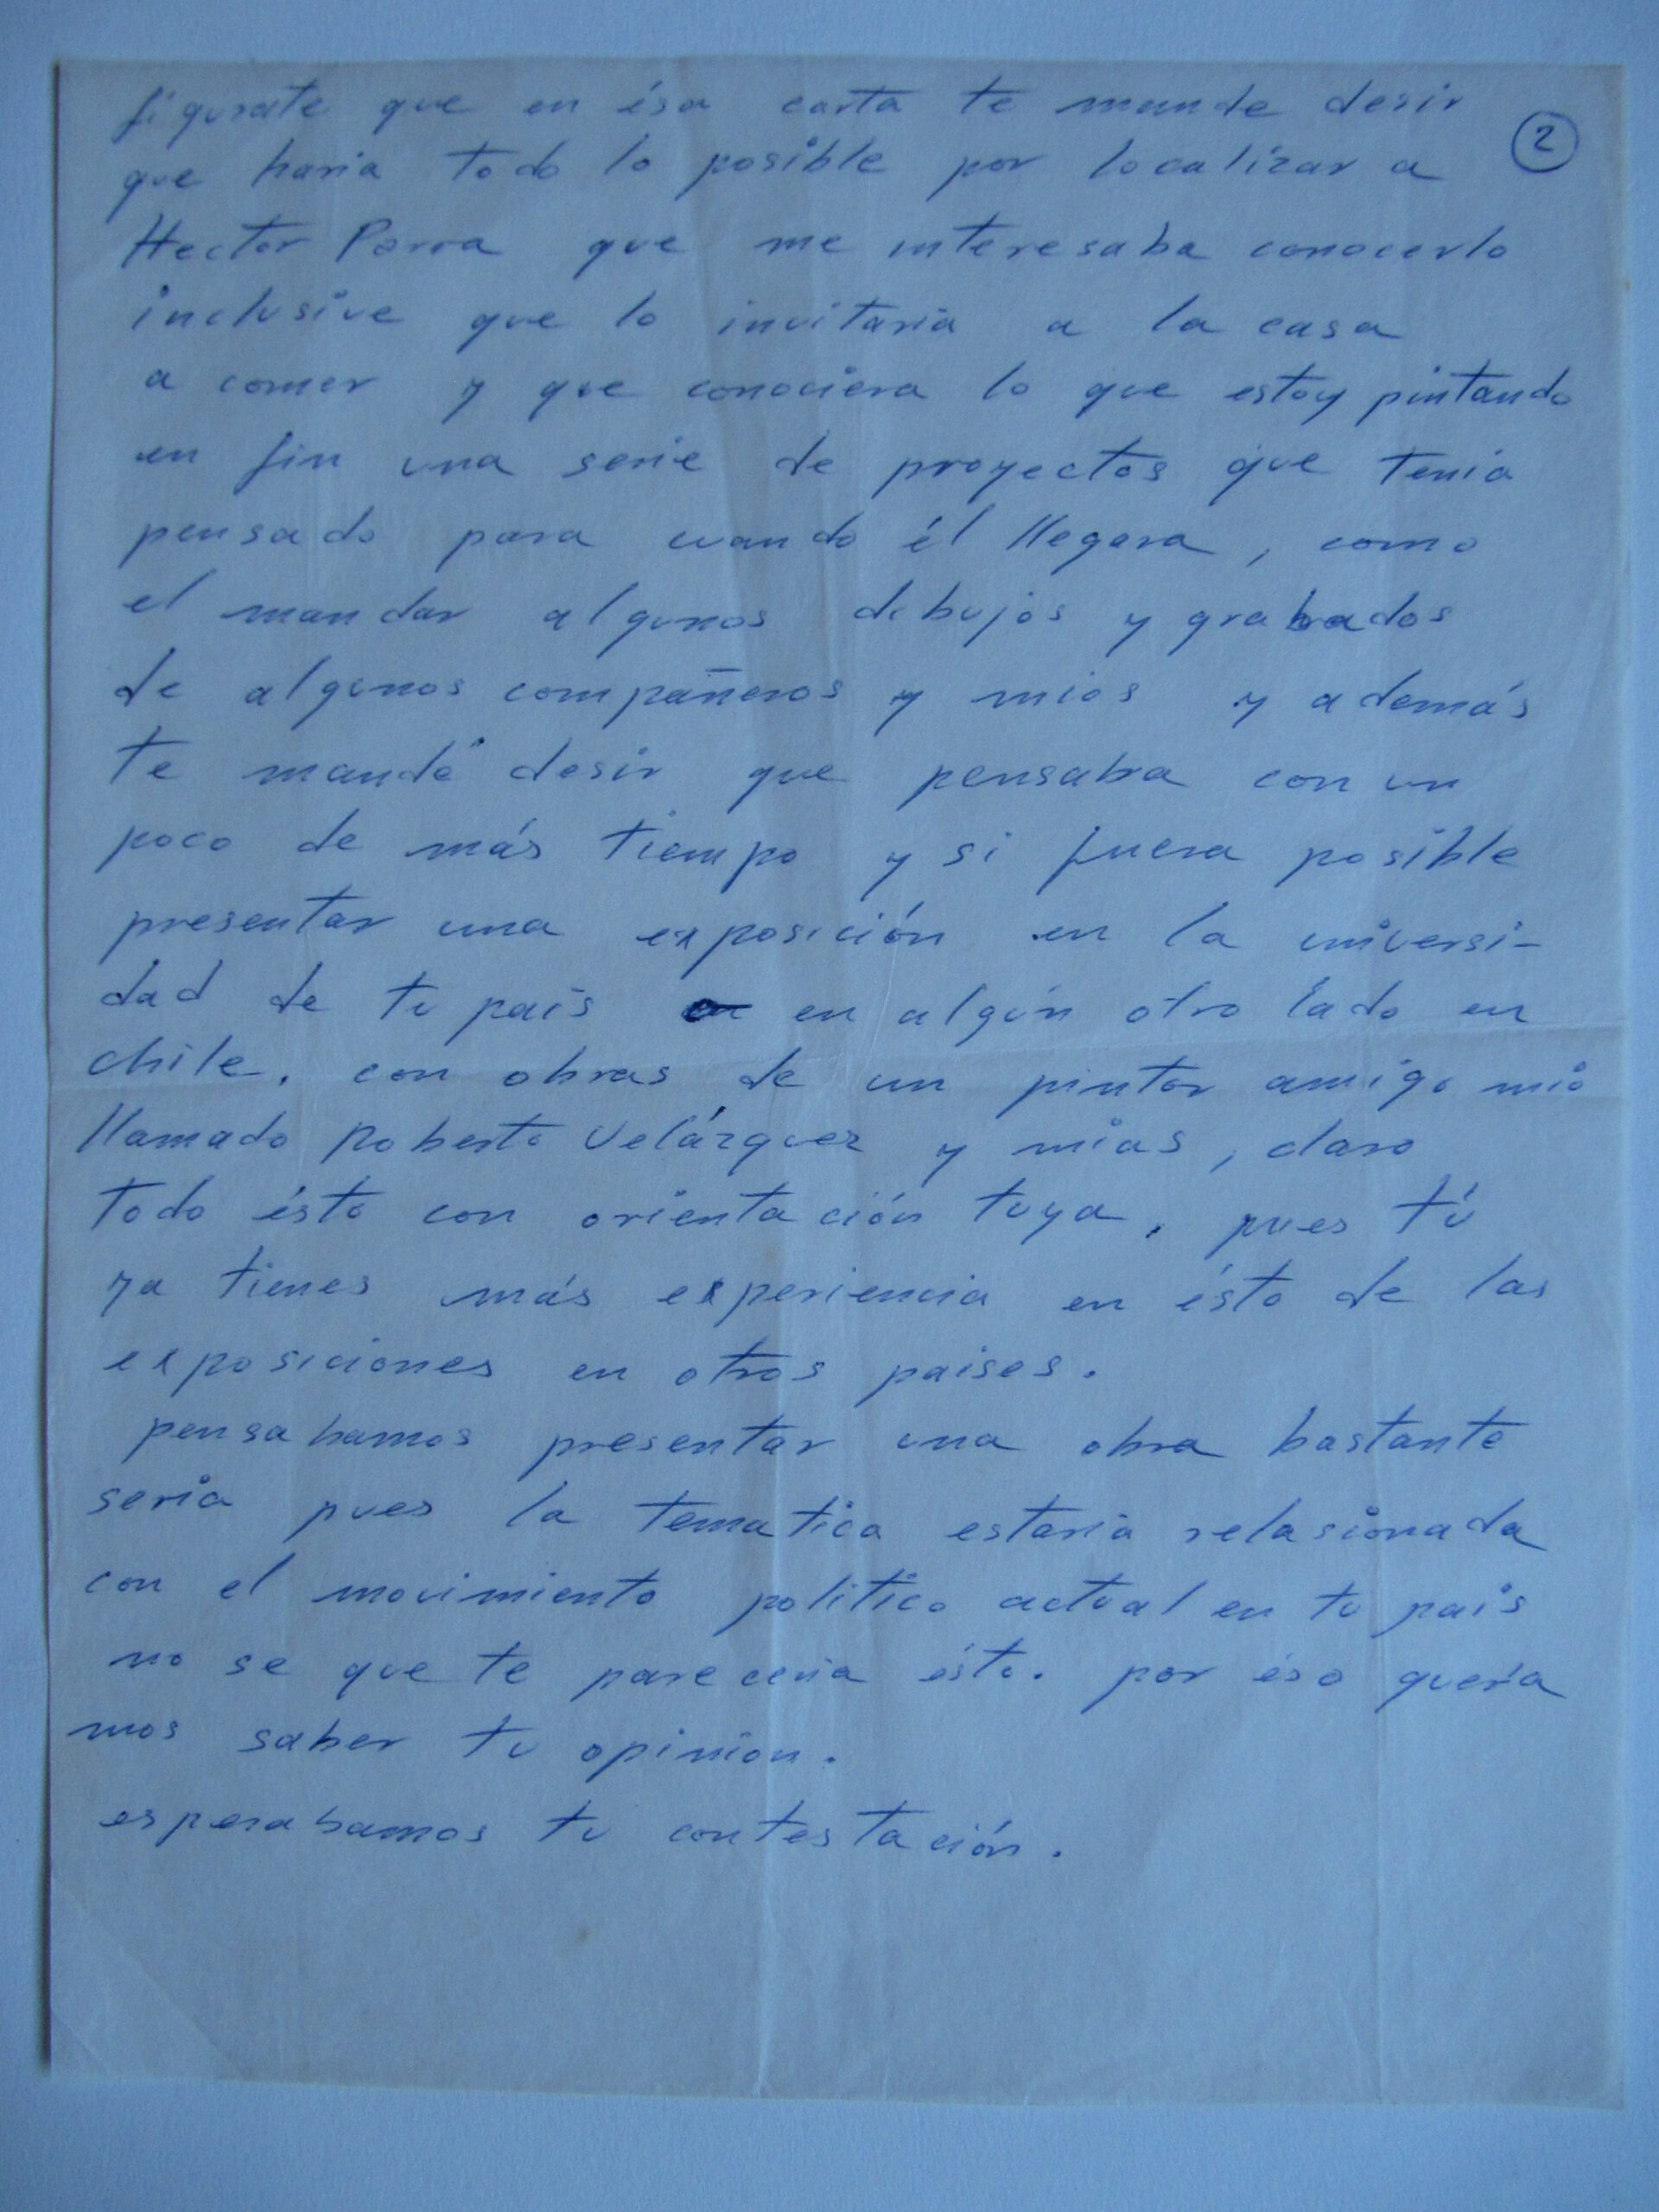 figurate que en ésa carta te mande desir
2
que haria todo lo posible por localizar a
Hector Parra que me interesaba conocerlo
inclusive que lo invitaria a la casa
a comer y que conociera lo que estoy pintando
en fin una serie de proyectos que tenia
pensado para cuando él llegara, como
el mandar algunos dibujos y grabados
de algunos compañeros y mios y además
te mandé desir que pensaba con un
poco de más tiempo y si fuera posible
presentar una exposición en la universi-
dad de tu pais en algún otro lado en
chile. con obras de un pintor amigo mio
llamado Roberto Velázquez y mias, claro
todo ésto con orientación tuya. pues tú
ya tienes más experiencia en ésto de las
exposiciones en otros paises.
pensabamos presentar una obra bastante
seria pues la tematica estaria relasionada
con el movimiento politico actual en tu pais
no se que te pareceria ésto. por éso queria
mos saber tu opinion.
esperabamos tu contestación.